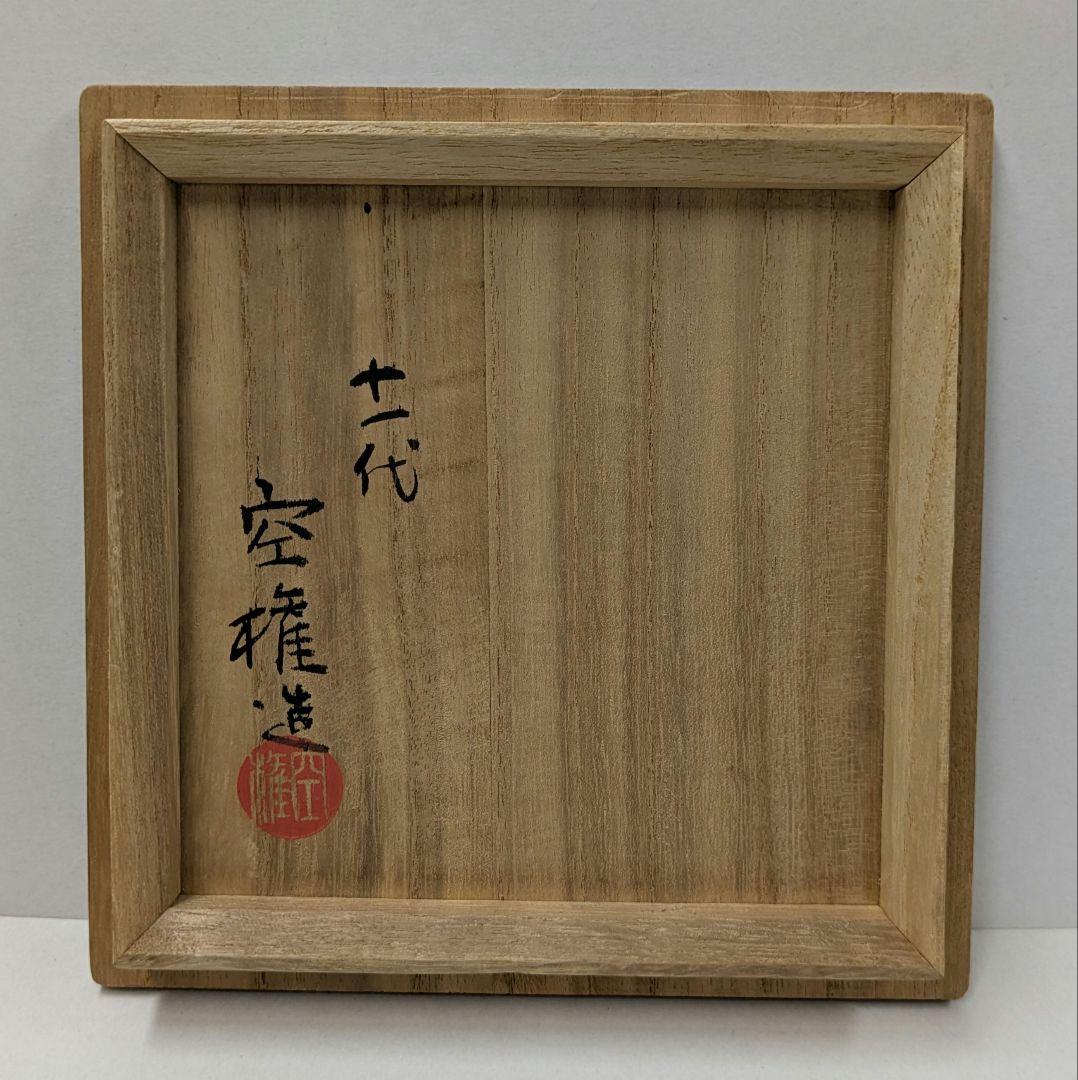 十一代
空権造
空権